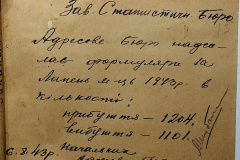 Зав. Статистичн. Бюро
Адресове Бюро надси-
лає формуляри за
Липень м-ць 1943р. в
кількості:
прибуття – 1204.
вибуття – 1101.
6.8.43р. Начальник